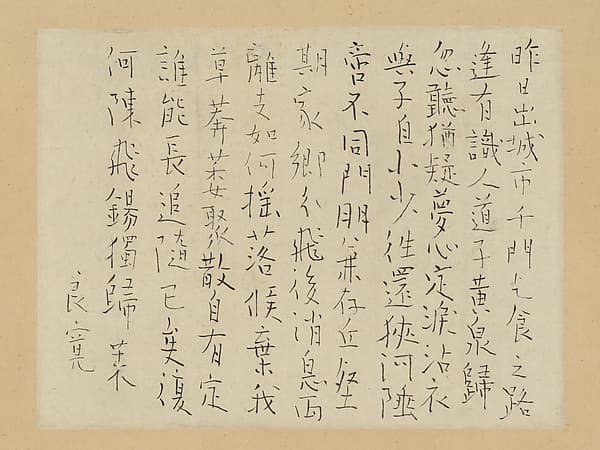 昨日出城市千門乞食之路
逢有識人道子黃泉歸
忽聽猶疑夢心定淚沾衣
與子自小少往還狹河陲
啻不同門朋兼存丘壑
期家鄉分飛後消息両
離支如何搖落候棄我
草聚散自有定
誰能長追隨已矣復
何陳飛錫獨歸来
良寛